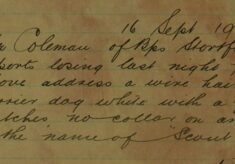 16 Sept 19
Coleman of Bps Stortf
ports losing last night
ove address a wire hai
rrier dog white with a
tches, no collar on an
the name of Scout